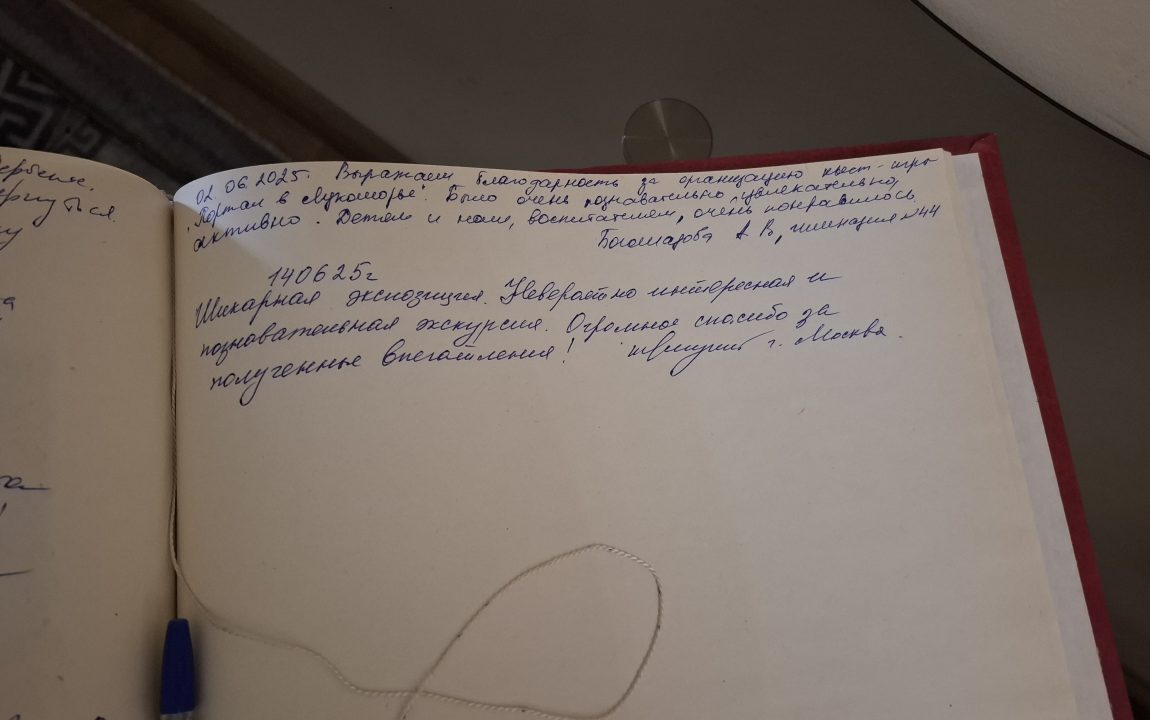 ернуться.
02.06.2025г. Выражаем благодарность за организацию квест-игры
"Портал в Лукоморье". Было очень познавательно, увлекательно,
активно. Детям и нам, воспитателям, очень понравилось.
А В, гимназия №44
140625г
Шикарная экспозиция. Невероятно интересная и
познавательная экскурсия. Огромное спасибо за
полученные впечатления! г. Москва.